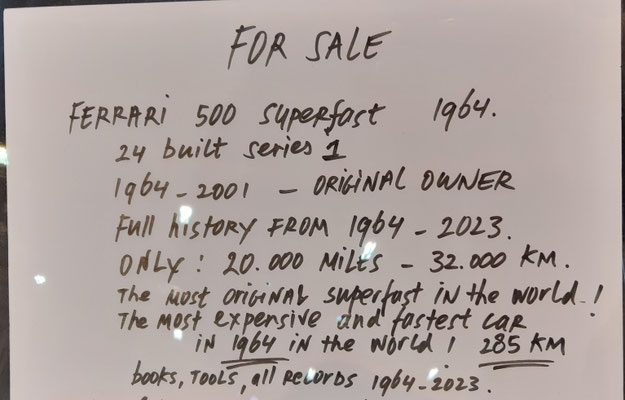 FOR SALE
FERRARI 500 Superfast 1964.
24 built series 1
1964-2001 - ORIGINAL OWNER
Full history FROM 1964-2023.
ONLY: 20.000 MILES - 32.000 KM.
The most ORIGINAL superfast in the world-!
The most expensive and fastest car
in 1964 in the world! 285 KM
books, Tools, all records 1964-2023.